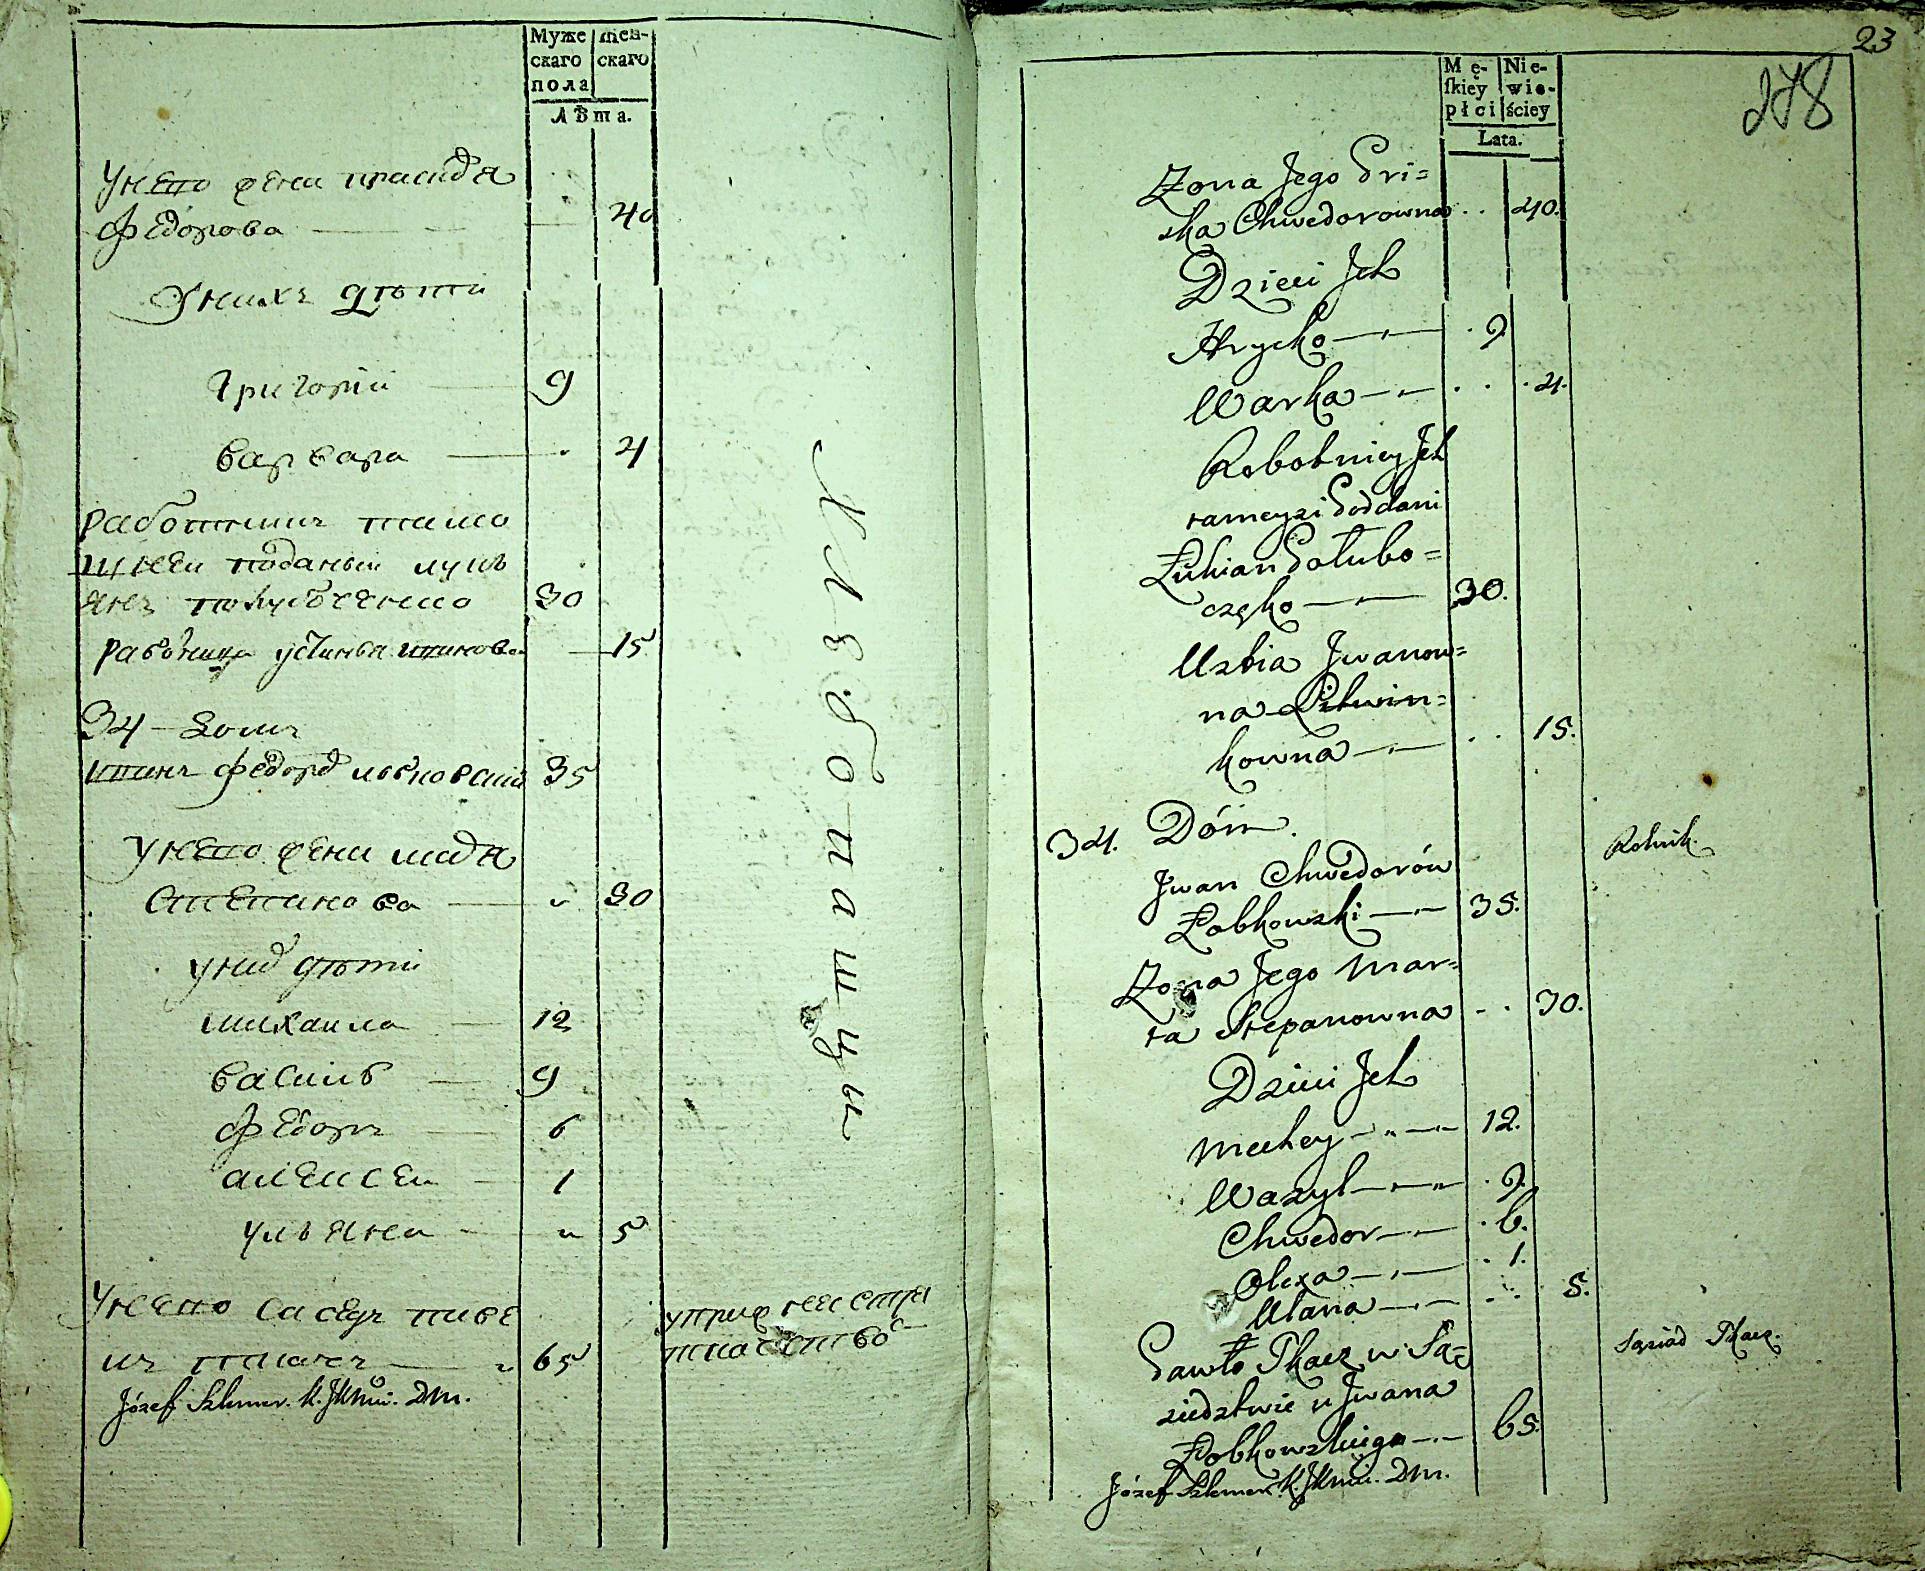 Муже
скаго
пола
Жен-
скаго
Лѣта.
у него жена праска
Федорова 40
у нихъ дѣти
григорий 9
варвара 4
работникъ тамо
шней поданый лукь
янъ голубченко 30
работница устинья иванова 15
34 домъ
иванъ федоров 35
у него жена марфа
степанова 30
у них дѣти
михаила 12
василь 9
федоръ 6
алексеи 1
ульяна 5
у него сосѣдъ
ткачъ 65
Józef Szlemer K. JKMci. DM.
хлѣбопашцы
23
278
Mę-
ſkiey
płci
Nie-
wie-
ściey
Lata.
Żona Jego Pri=
ska Chwedorowna 40.
Dzieci Jch
Hrycko 9
Warka 4.
Robotnicy Jch
tameyzi Poddani
Łukian Hołubo=
częko 30.
Usbia Jwanow=
na Litwin=
kowna 15.
34. Dóm.
Jwan Chwedorów
Łobkowski 35.
Rolnik.
Żona Jego Mar=
ta Stepanowna 30.
Dzieci Jch
Michey 12.
Wasyl 9.
Chwedor 6.
Olexa 1.
Ulana 5.
Pawło Tkacz w Są=
siedztwie u Jwana
Łobkowskiego 65.
Sąsiad Tkacz.
Józef Szlemer K. JKMci. DM.